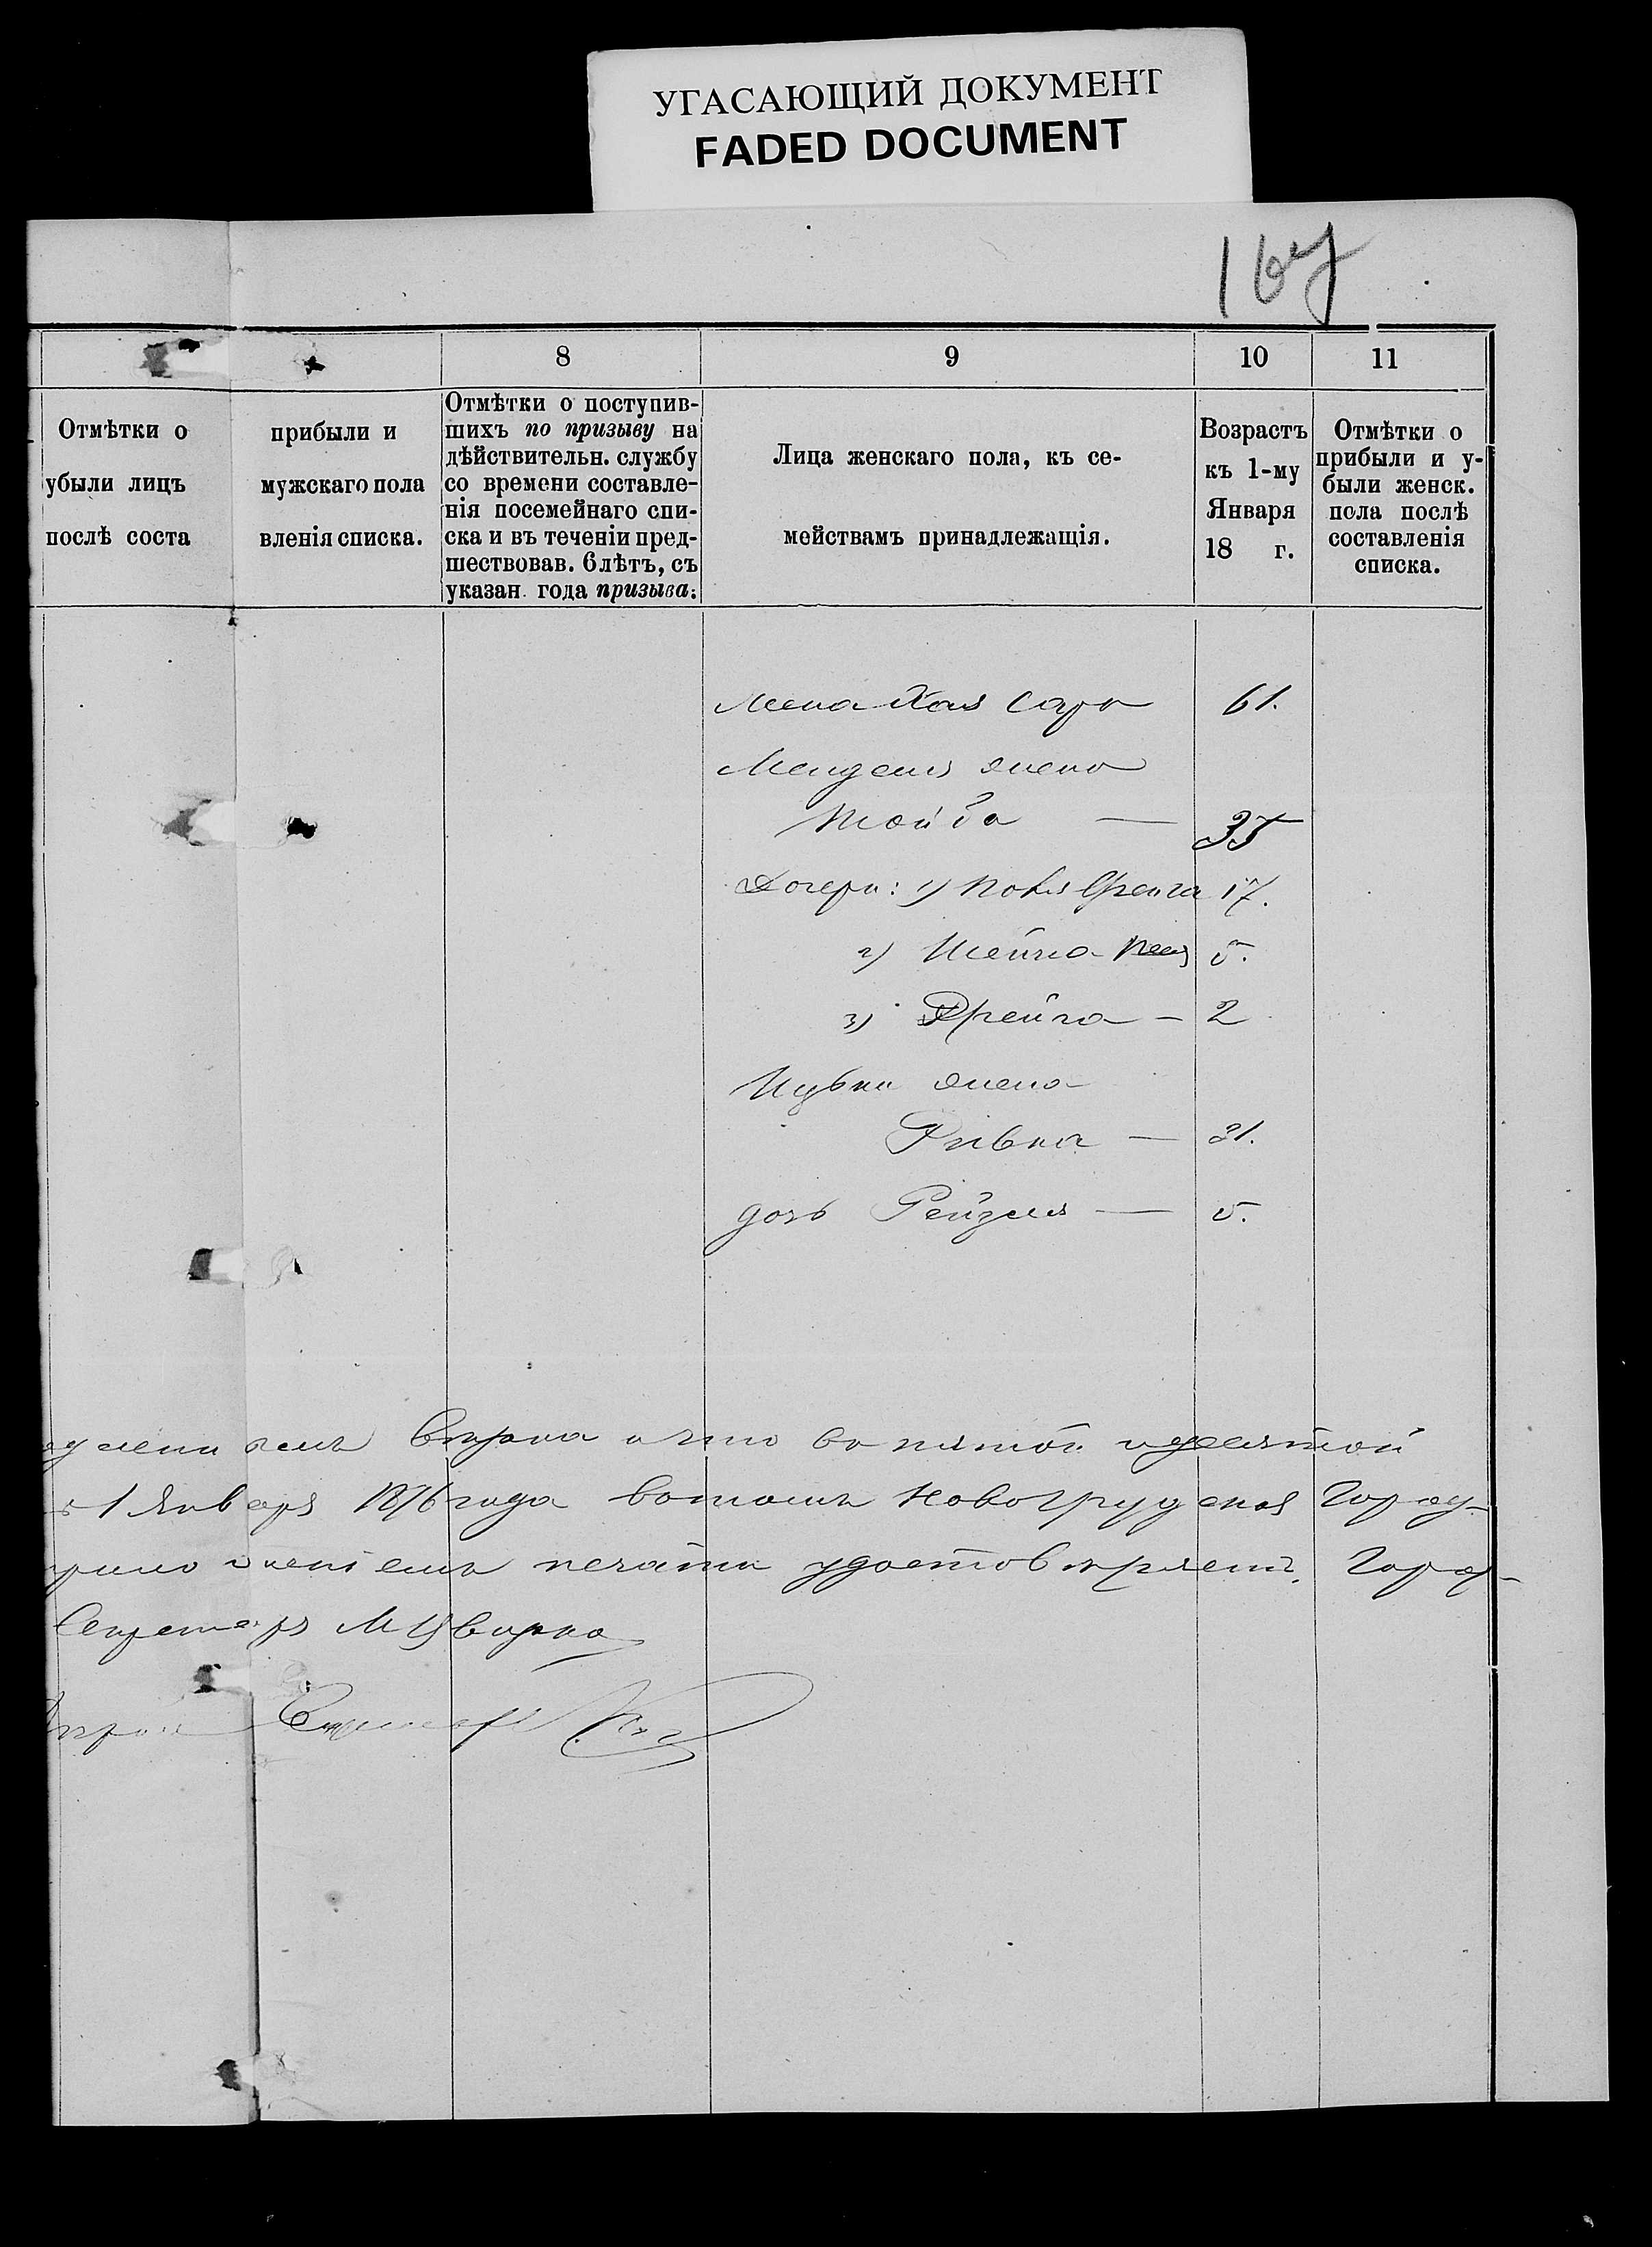 УГАСАЮЩИЙ ДОКУМЕНТ
FADED DOCUMENT
8 9 10 11
Отмѣтки о
убыли лицъ
послѣ соста
прибыли и
мужскаго пола
вленія списка.
Отмѣтки о поступив-
шихъ по призыву на
дѣйствительн. службу
со времени составле-
нія посемейнаго спи-
ска и въ теченіи пред-
шествовав. 6 лѣтъ, съ
указан. года призыва.
Лица женскаго пола, къ се-
мействамъ принадлежащія.
Возрастъ
къ 1-му
Января
18 г.
Отмѣтки о
прибыли и у-
были женск.
пола послѣ
составленія
списка.
жена Хая Сара 61.
Менделя жена
Тойба — 35
Дочери: 1) 17.
2) Шейна 5.
3) Фрейда — 2
Ицьки жена
Ривка — 31.
дочь Рейзля — 5.
и что во пятой и десятой
1 Января 1876 года вотомъ Новогрудская Город-
приложеніемъ печати удостовѣряетъ. Город-
Секретарь М Цвирко